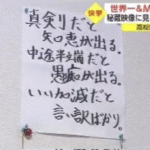 快挙
世界一&M
秘蔵映像に見
高校
真剣だと
知恵が出る。
中途半端だと
愚痴が出る。
いい加減だと
言い訳ばかり